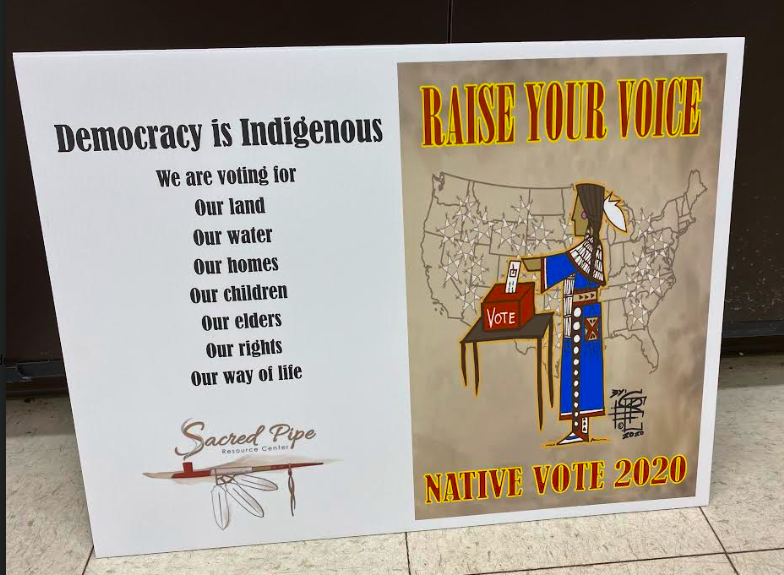 Democracy is Indigenous
We are voting for
Our land
Our water
Our homes
Our children
Our elders
Our rights
Our way of life
Sacred Pipe
Resource Center
RAISE YOUR VOICE
VOTE
BY
©
2020
NATIVE VOTE 2020